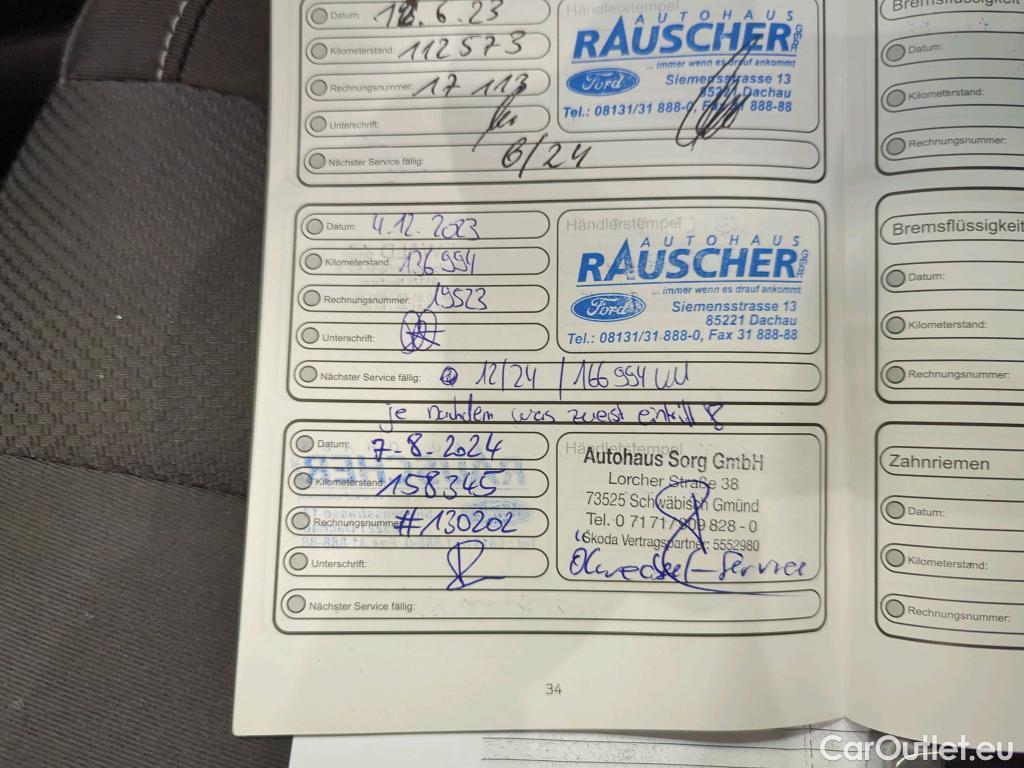 Datum: 12.6.23
Kilometerstand: 112573
Rechnungsnummer: 17 113
Unterschrift:
Nächster Service fällig: 6/24
Händlerstempel
AUTOHAUS
RAUSCHER GMBH
... immer wenn es drauf ankommt
Ford Siemensstrasse 13
85221 Dachau
Tel.: 08131/31 888-0, Fax 31 888-88
Bremsflüssigkeit
Datum:
Kilometerstand:
Rechnungsnummer:
Datum: 4.12.2023
Kilometerstand: 136994
Rechnungsnummer: 19523
Unterschrift:
Nächster Service fällig: 12/24 / 166994 km
je nachdem was zuerst eintrifft
Händlerstempel
AUTOHAUS
RAUSCHER GMBH
... immer wenn es drauf ankommt
Ford Siemensstrasse 13
85221 Dachau
Tel.: 08131/31 888-0, Fax 31 888-88
Bremsflüssigkeit
Datum:
Kilometerstand:
Rechnungsnummer:
Datum: 7-8-2024
Kilometerstand: 158345
Rechnungsnummer: #130202
Unterschrift:
Nächster Service fällig:
Händlerstempel
Autohaus Sorg GmbH
Lorcher Straße 38
73525 Schwäbisch Gmünd
Tel. 0 71 71 / 909 828 - 0
Škoda Vertragspartner: 5552980
Ölwechsel-Service
Zahnriemen
Datum:
Kilometerstand:
Rechnungsnummer:
34
CarOutlet.eu